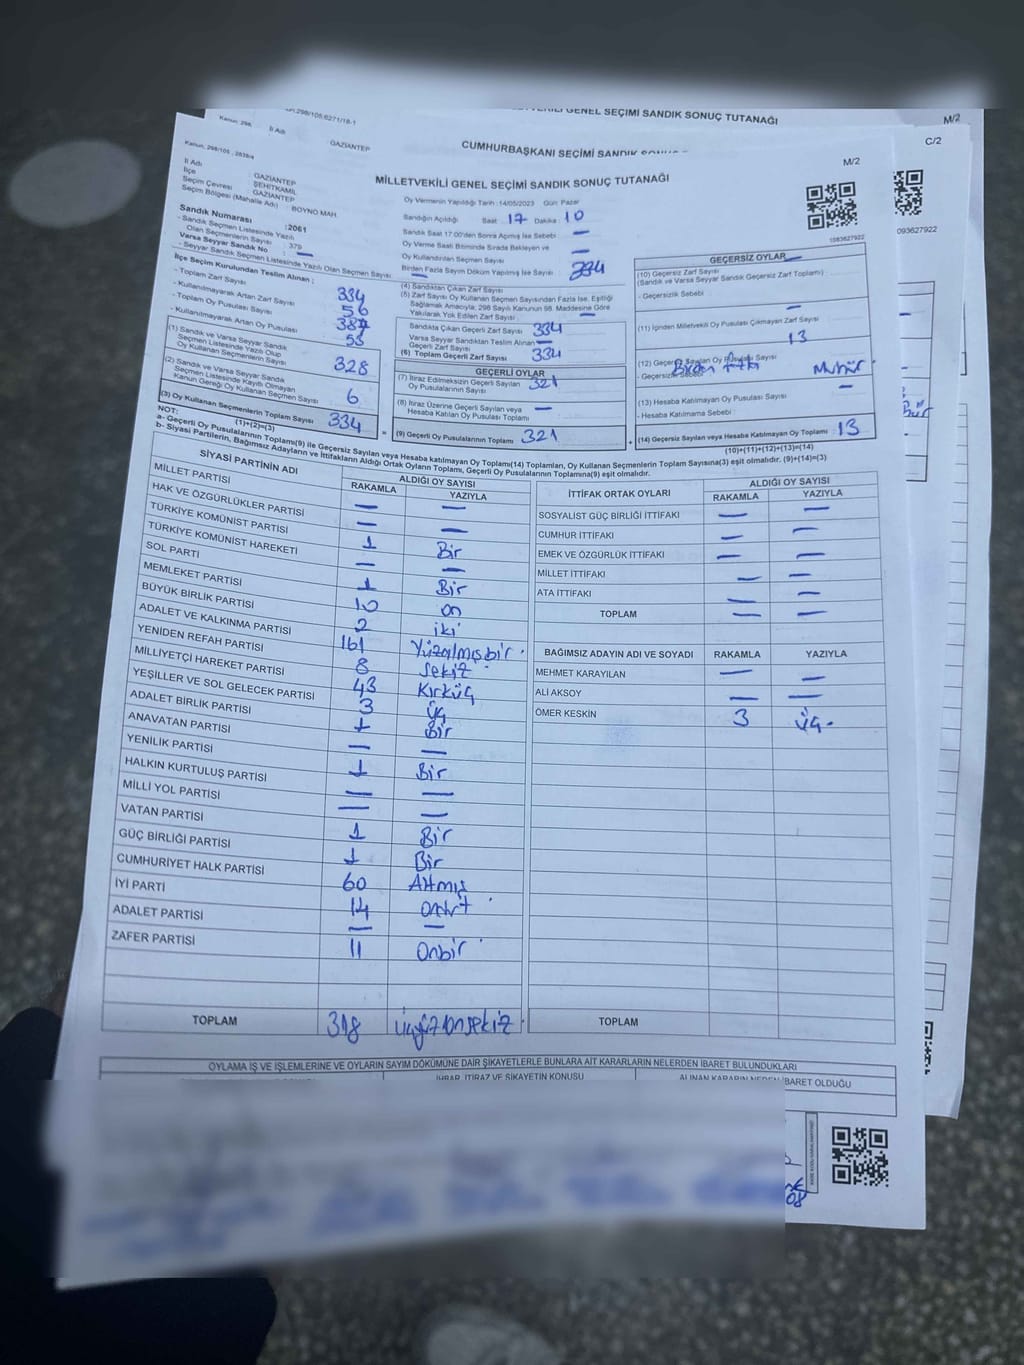 298/105.6271/18-1
GENEL SEÇİMİ SANDIK SONUÇ TUTANAĞI
M/2
Kanun: 298,
İli Adı
GAZİANTEP
CUMHURBAŞKANI SEÇİMİ SANDIK
C/2
Kanun: 298/105
MİLLETVEKİLİ GENEL SEÇİMİ SANDIK SONUÇ TUTANAĞI
M/2
İli Adı : GAZİANTEP
İlçe : ŞEHİTKAMİL
Seçim Çevresi : GAZİANTEP
Seçim Bölgesi (Mahalle Adı) : BOYNO MAH.
Sandık Numarası :2061
- Sandık Seçmen Listesinde Yazılı
Olan Seçmenlerin Sayısı : 379
Varsa Seyyar Sandık No : —
- Seyyar Sandık Seçmen Listesinde Yazılı Olan Seçmen Sayısı : —
Oy Vermenin Yapıldığı Tarih :14/05/2023 Gün: Pazar
Sandığın Açıldığı Saat : 17 Dakika : 10
Sandık Saat 17.00'den Sonra Açmış İse Sebebi : —
Oy Verme Saati Bitiminde Sırada Bekleyen ve
Oy Kullandırılan Seçmen Sayısı : —
Birden Fazla Sayım Döküm Yapılmış İse Sayısı :
1093627922
093627922
İlçe Seçim Kurulundan Teslim Alınan ;
- Toplam Zarf Sayısı
- Kullanılmayarak Artan Zarf Sayısı : 56
- Toplam Oy Pusulası Sayısı
- Kullanılmayarak Artan Oy Pusulası
(1) Sandık ve Varsa Seyyar Sandık
Seçmen Listesinde Yazılı Olup
Oy Kullanan Seçmenlerin Sayısı 328
(2) Sandık ve Varsa Seyyar Sandık
Seçmen Listesinde Kayıtlı Olmayan
Kanun Gereği Oy Kullanan Seçmen Sayısı 6
(3) Oy Kullanan Seçmenlerin Toplam Sayısı 334
(1)+(2)=(3)
(4) Sandıktan Çıkan Zarf Sayısı 334
(5) Zarf Sayısı Oy Kullanan Seçmen Sayısından Fazla İse, Eşitliği
Sağlamak Amacıyla; 298 Sayılı Kanunun 98. Maddesine Göre
Yakılarak Yok Edilen Zarf Sayısı : —
Sandıkta Çıkan Geçerli Zarf Sayısı 334
Varsa Seyyar Sandıktan Teslim Alınan
Geçerli Zarf Sayısı —
(6) Toplam Geçerli Zarf Sayısı 334
GEÇERLİ OYLAR
(7) İtiraz Edilmeksizin Geçerli Sayılan
Oy Pusulalarının Sayısı 321
(8) İtiraz Üzerine Geçerli Sayılan veya
Hesaba Katılan Oy Pusulası Toplamı —
(9) Geçerli Oy Pusulalarının Toplamı 321
GEÇERSİZ OYLAR
(10) Geçersiz Zarf Sayısı
(Sandık ve Varsa Seyyar Sandık Geçersiz Zarf Toplamı) :
- Geçersizlik Sebebi :
(11) İçinden Milletvekili Oy Pusulası Çıkmayan Zarf Sayısı —
(12) Geçersiz Sayılan Oy Pusulası Sayısı 13
- Geçersizlik Sebebi : Birden Mühür
(13) Hesaba Katılmayan Oy Pusulası Sayısı —
- Hesaba Katılmama Sebebi :
(14) Geçersiz Sayılan veya Hesaba Katılmayan Oy Toplamı 13
(10)+(11)+(12)+(13)=(14)
NOT:
a- Geçerli Oy Pusulalarının Toplamı(9) ile Geçersiz Sayılan veya Hesaba katılmayan Oy Toplamı(14) Toplamları, Oy Kullanan Seçmenlerin Toplam Sayısına(3) eşit olmalıdır. (9)+(14)=(3)
b- Siyasi Partilerin, Bağımsız Adayların ve İttifakların Aldığı Ortak Oyların Toplamı, Geçerli Oy Pusulalarının Toplamına(9) eşit olmalıdır.
SİYASİ PARTİNİN ADI ALDIĞI OY SAYISI
RAKAMLA YAZIYLA
MİLLET PARTİSİ — —
HAK VE ÖZGÜRLÜKLER PARTİSİ — —
TÜRKİYE KOMÜNİST PARTİSİ 1 Bir
TÜRKİYE KOMÜNİST HAREKETİ — —
SOL PARTİ 1 Bir
MEMLEKET PARTİSİ 10 on
BÜYÜK BİRLİK PARTİSİ 2 iki
ADALET VE KALKINMA PARTİSİ 161 Yüzaltmışbir
YENİDEN REFAH PARTİSİ 8 sekiz
MİLLİYETÇİ HAREKET PARTİSİ 43 Kırküç
YEŞİLLER VE SOL GELECEK PARTİSİ 3 üç
ADALET BİRLİK PARTİSİ 1 Bir
ANAVATAN PARTİSİ — —
YENİLİK PARTİSİ 1 Bir
HALKIN KURTULUŞ PARTİSİ — —
MİLLİ YOL PARTİSİ — —
VATAN PARTİSİ 1 Bir
GÜÇ BİRLİĞİ PARTİSİ 1 Bir
CUMHURİYET HALK PARTİSİ 60 Altmış
İYİ PARTİ 14 ondört
ADALET PARTİSİ — —
ZAFER PARTİSİ 11 Onbir
TOPLAM 318 üçyüzonsekiz
İTTİFAK ORTAK OYLARI ALDIĞI OY SAYISI
RAKAMLA YAZIYLA
SOSYALİST GÜÇ BİRLİĞİ İTTİFAKI — —
CUMHUR İTTİFAKI — —
EMEK VE ÖZGÜRLÜK İTTİFAKI — —
MİLLET İTTİFAKI — —
ATA İTTİFAKI — —
TOPLAM — —
BAĞIMSIZ ADAYIN ADI VE SOYADI RAKAMLA YAZIYLA
MEHMET KARAYILAN — —
ALİ AKSOY — —
ÖMER KESKİN 3 üç
TOPLAM
OYLAMA İŞ VE İŞLEMLERİNE VE OYLARIN SAYIM DÖKÜMÜNE DAİR ŞİKAYETLERLE BUNLARA AİT KARARLARIN NELERDEN İBARET BULUNDUKLARI
İHBAR, İTİRAZ VE ŞİKAYETİN KONUSU
ALINAN KARARIN NEDEN İBARET OLDUĞU
08